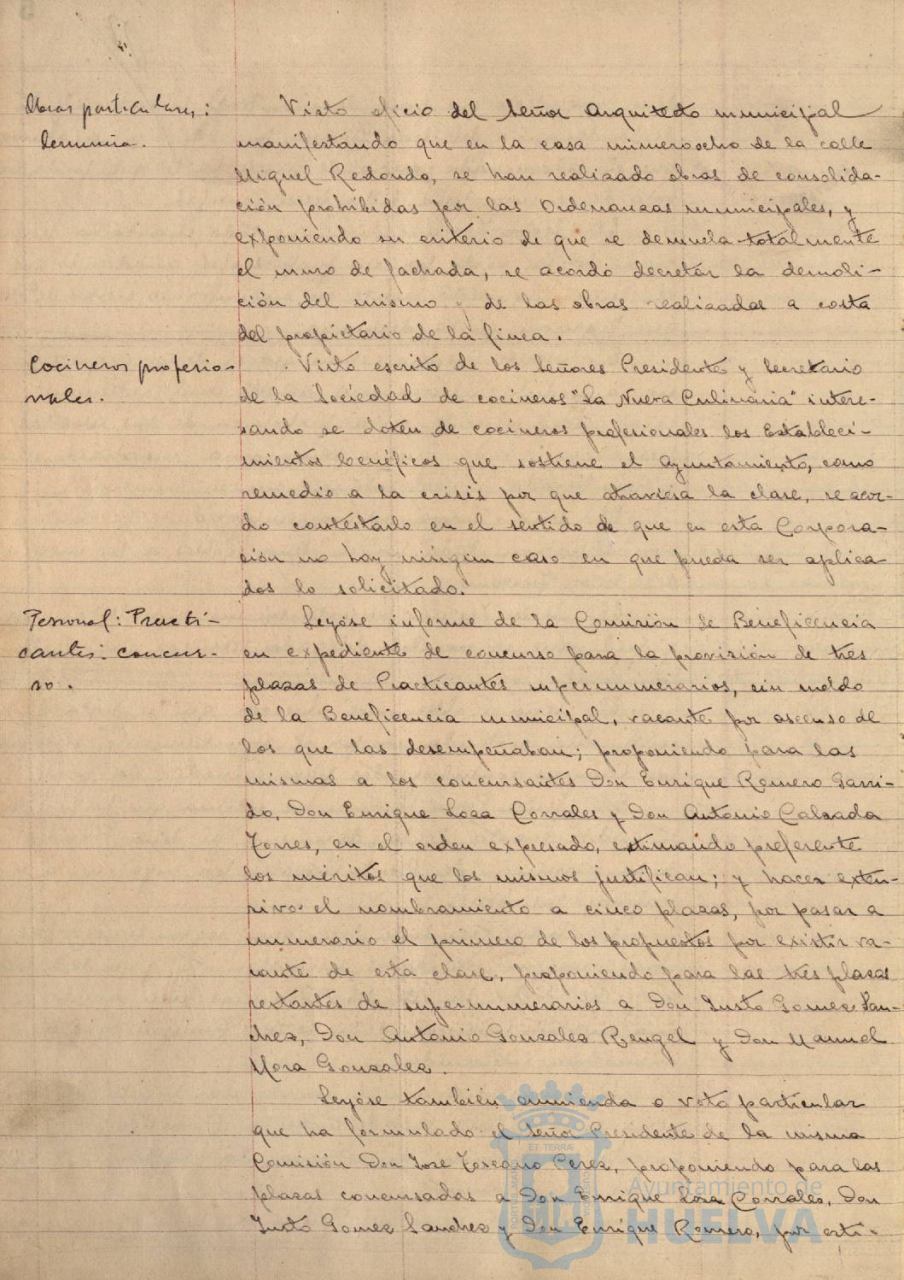 Obras particulares:
Denuncia.
Visto oficio del Señor Arquitecto municipal
manifestando que en la casa número ocho de la calle
Miguel Redondo, se han realizado obras de consolida-
ción prohibidas por las Ordenanzas municipales, y
exponiendo su criterio de que se demuela totalmente
el muro de fachada, se acordó decretar la demoli-
ción del mismo y de las obras realizadas a costa
del propietario de la finca.
Cocineros profesio-
nales.
Visto escrito de los Señores Presidente y Secretario
de la Sociedad de cocineros "La Nueva Culinaria" intere-
sando se doten de cocineros profesionales los Estableci-
mientos benéficos que sostiene el Ayuntamiento, como
remedio a la crisis por que atraviesa la clase, se acor-
do contestarlo en el sentido de que en esta Corpora-
ción no hay ningún caso en que pueda ser aplica
dos lo solicitado.
Personal: Practi-
cantes: concur-
so.
Leyóse informe de la Comisión de Beneficencia
en expediente de concurso para la provisión de tres
plazas de Practicantes supernumerarios, sin sueldo
de la Beneficencia municipal, vacante por ascenso de
los que las desempeñaban; proponiendo para las
mismas a los concursantes Don Enrique Romero Garri-
do, Don Enrique Losa Corrales y Don Antonio Calzada
Torres, en el orden expresado, estimando preferente
los méritos que los mismos justifican; y hacer exten-
sivo el nombramiento a cinco plazas, por pasar a
numerario el primero de los propuestos por existir va-
cante de esta clase, proponiendo para las tres plazas
restantes de supernumerarios a Don Justo Gomez San-
chez, Don Antonio Gonzalez Rengel y Don Manuel
Mora Gonzalez.
Leyóse también enmienda o voto particular
que ha formulado el Señor Presidente de la misma
Comisión Don Jose Toscano Perez, proponiendo para las
plazas concursadas a Don Enrique Losa Corrales, Don
Justo Gomez Sanchez y Don Enrique Romero, por esti-
Ayuntamiento de
HUELVA